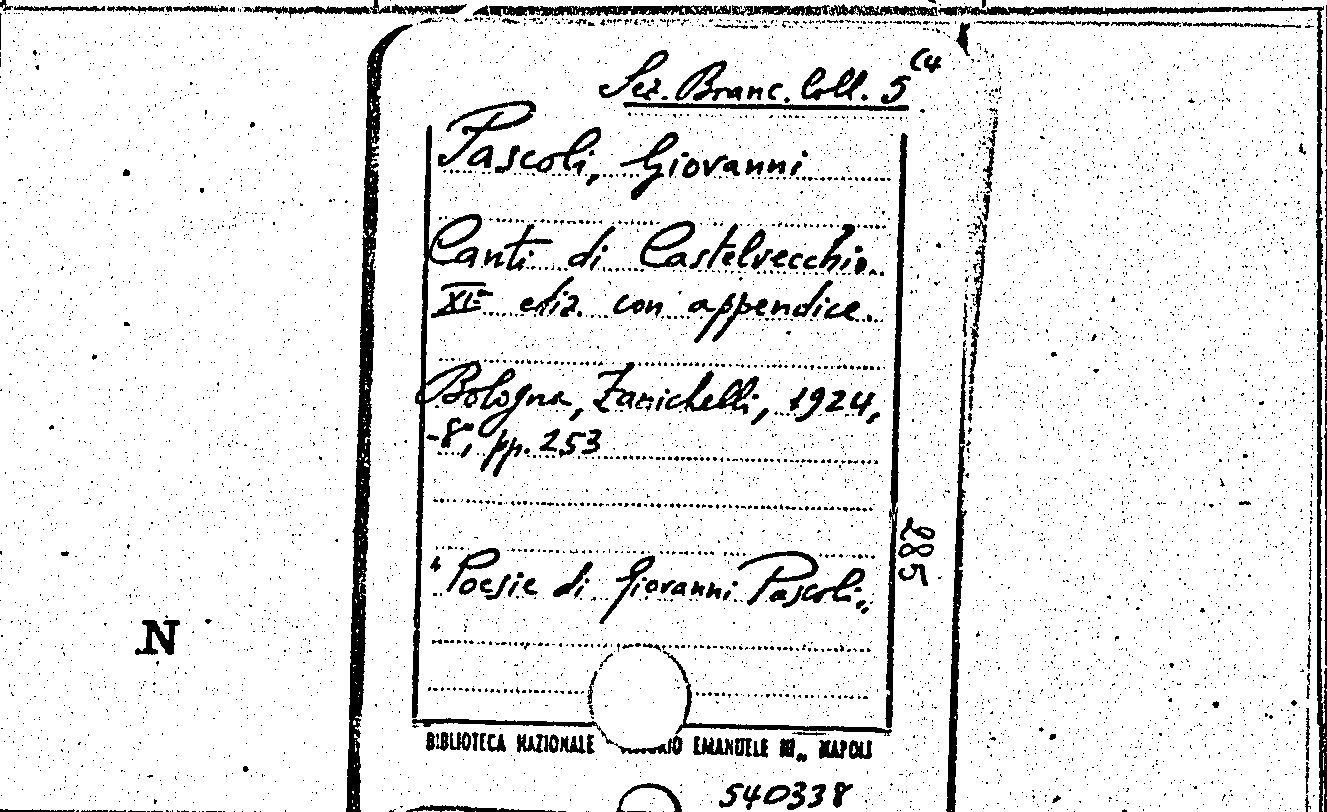 Sez. Branc. Coll. 5 C4
Pascoli, Giovanni
Canti di Castelvecchio.
XIª ediz. con appendice.
Bologna, Zanichelli, 1924,
-8°, pp. 253
"Poesie di Giovanni Pascoli„
285
N
BIBLIOTECA NAZIONALE EMANUELE III„ NAPOLI
540338